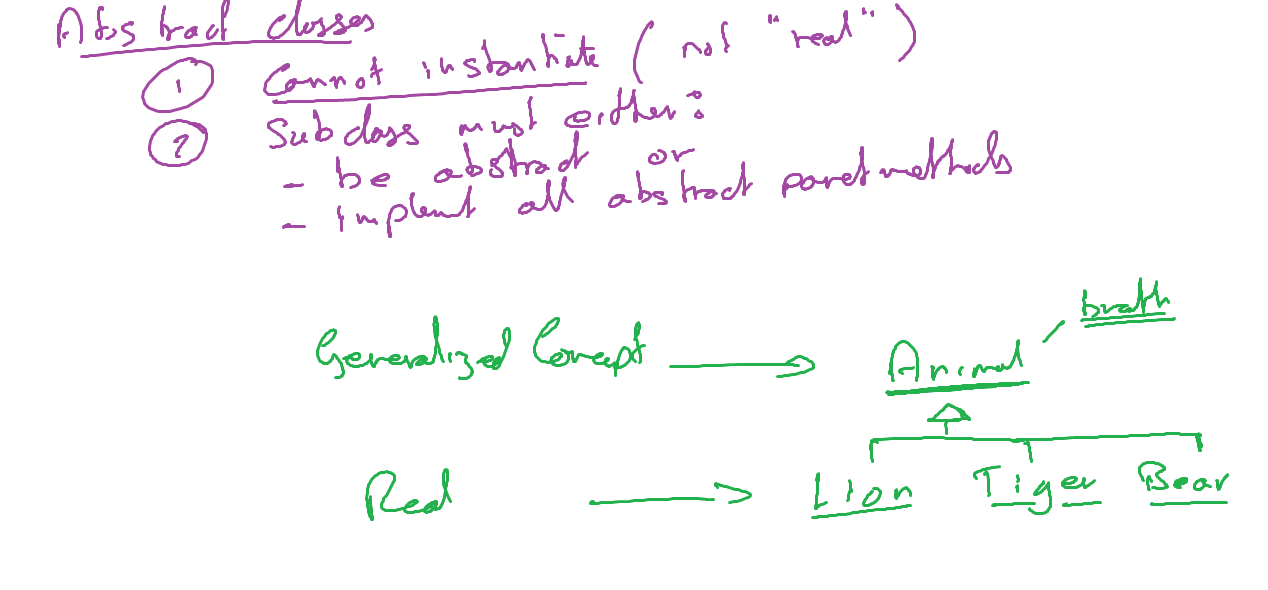 Abstract classes
① Cannot instantiate (not "real")
② Subclass must either:
- be abstract or
- implent all abstract paret methods
breath
Generalized Concept → Animal
Real → Lion Tiger Bear